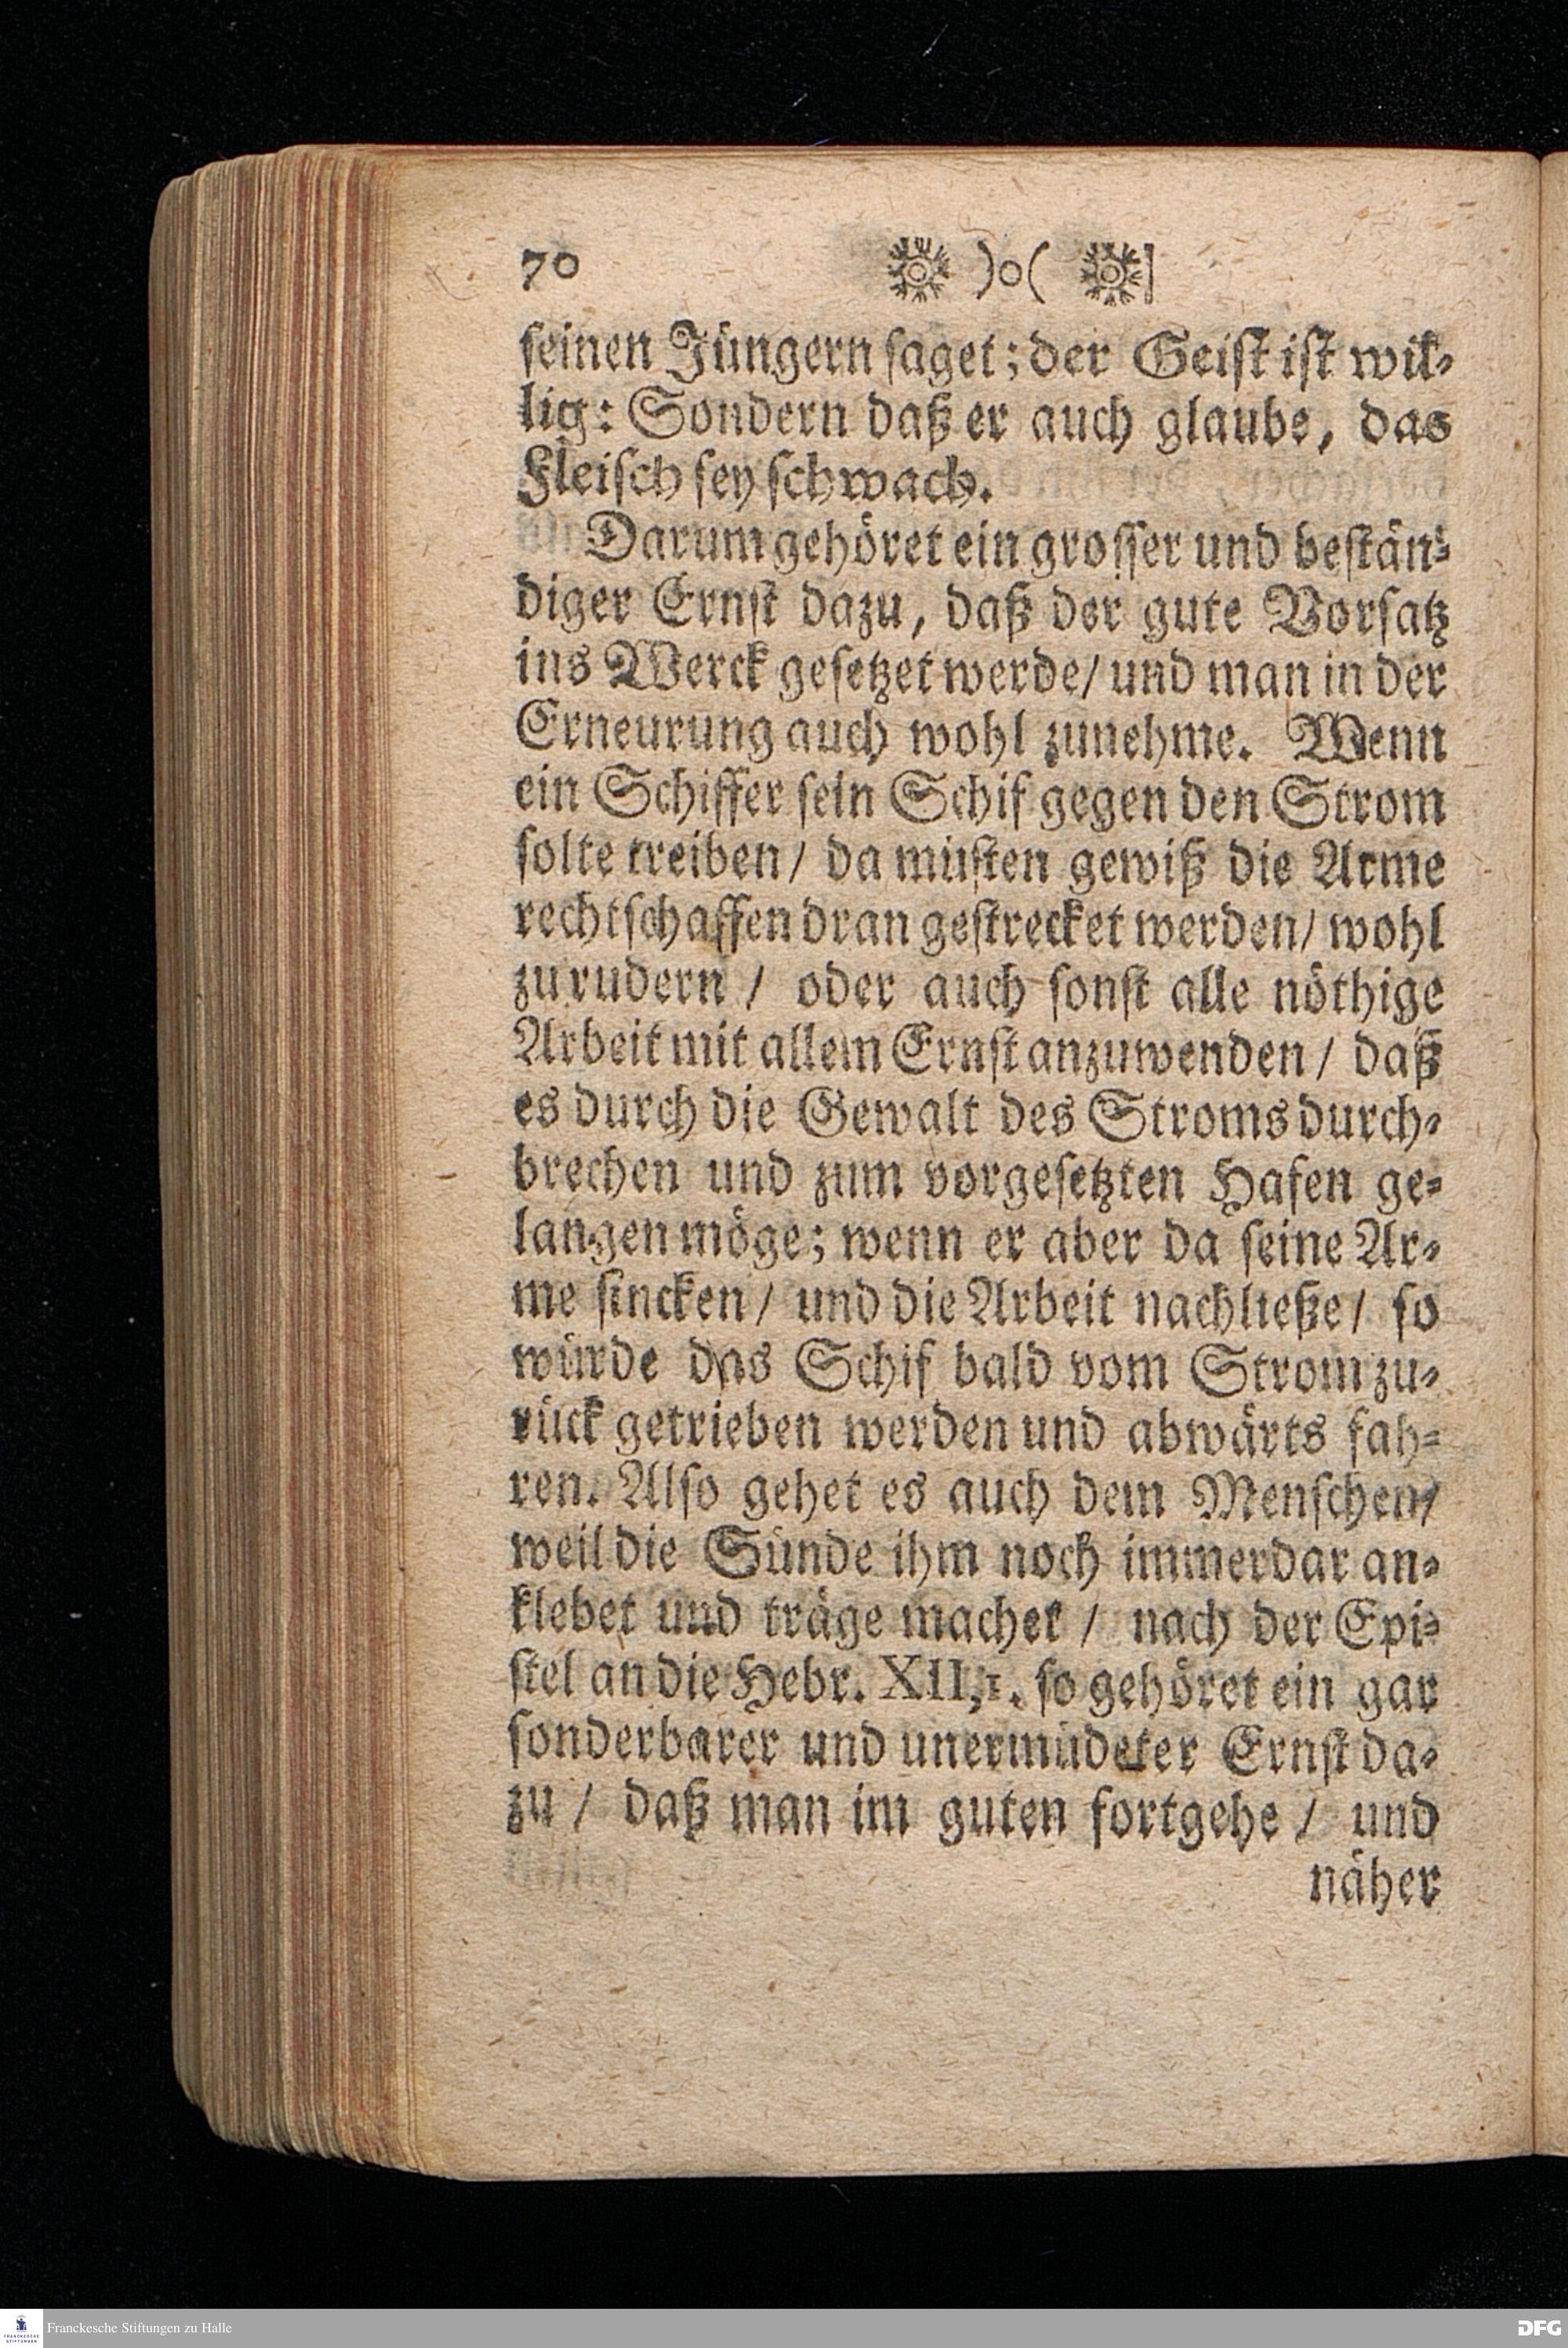 70 )o(
seinen Jüngern saget; der Geist ist wil-
lig: Sondern daß er auch glaube, das
Fleisch sey schwach.
Darum gehöret ein grosser und bestän-
diger Ernst dazu, daß der gute Vorsatz
ins Werck gesetzet werde/ und man in der
Erneurung auch wohl zunehme. Wenn
ein Schiffer sein Schif gegen den Strom
solte treiben/ da müsten gewiß die Arme
rechtschaffen dran gestrecket werden/ wohl
zu rudern / oder auch sonst alle nöthige
Arbeit mit allem Ernst anzuwenden / daß
es durch die Gewalt des Stroms durch-
brechen und zum vorgesetzten Hafen ge-
langen möge; wenn er aber da seine Ar-
me sincken / und die Arbeit nachließe / so
würde das Schif bald vom Strom zu-
rück getrieben werden und abwärts fah-
ren. Also gehet es auch dem Menschen/
weil die Sünde ihm noch immerdar an-
klebet und träge machet / nach der Epi-
stel an die Hebr. XII,1. so gehöret ein gar
sonderbarer und unermüdeter Ernst da-
zu / daß man im guten fortgehe / und
näher
FRANCKESCHE STIFTUNGEN
Franckesche Stiftungen zu Halle
DFG